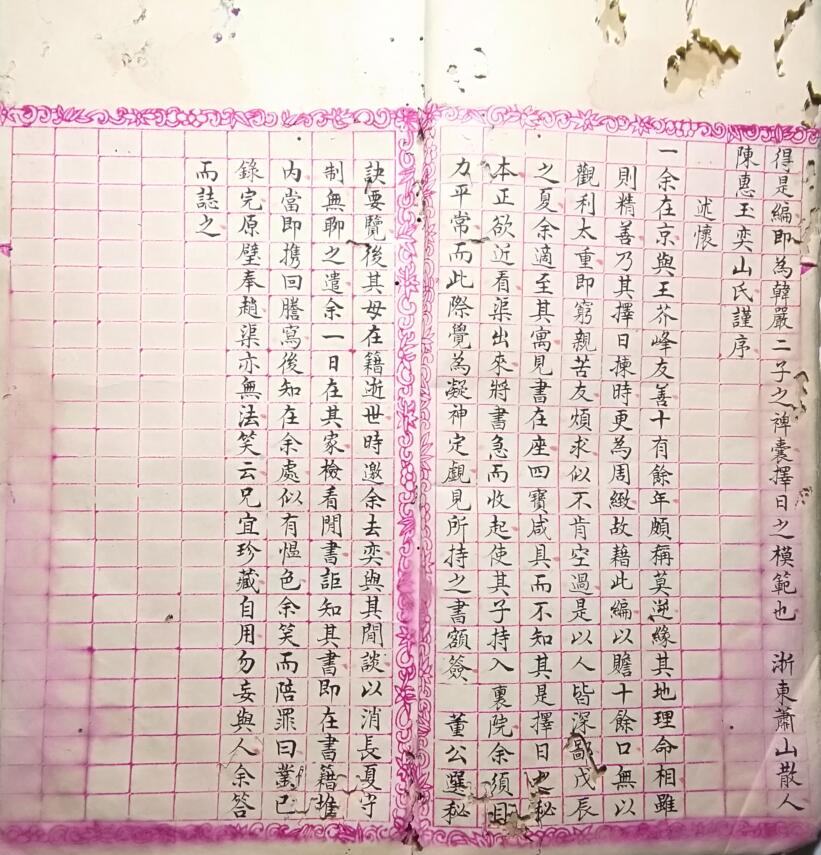 得是編即為韓嚴二子之裨囊擇日之模範也　浙東蕭山散人
陳惠玉奕山氏謹序
述懷
一余在京與王芥峰友善十有餘年頗稱莫逆緣其地理命相雖
則精善乃其擇日揀時更為周緻故藉此編以贍十餘口無以
觀利太重即窮親苦友煩求似不肯空過是以人皆深鄙戊辰
之夏余適至其寓見書在座四寶咸具而不知其是擇日之秘
本正欲近看渠出來將書急而收起使其子持入裏院余須目
力平常而此際覺為凝神定覷見所持之書額簽　董公選秘
訣要覽後其母在籍逝世時邀余去奕與其閒談以消長夏守
制無聊之遣余一日在其家檢看閒書詎知其書即在書籍堆
內當即携回謄寫後知在余處似有慍色余笑而陪罪曰業已
錄完原璧奉趙渠亦無法笑云兄宜珍藏自用勿妄與人余答
而誌之